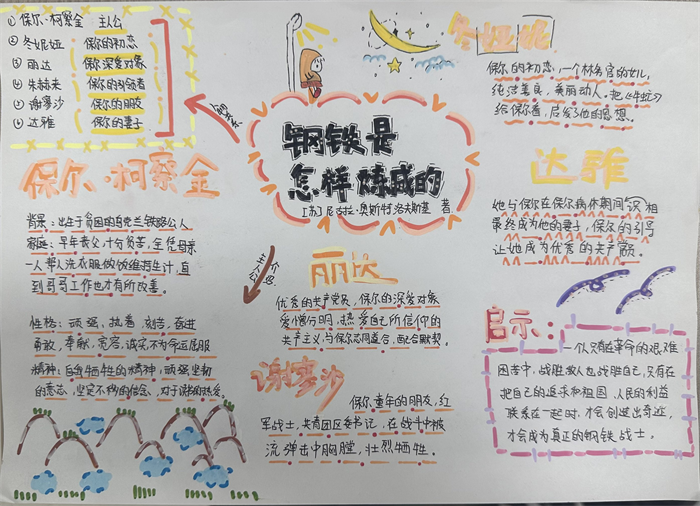 ① 保尔·柯察金 主人公
② 冬妮娅 (保尔的初恋)
③ 丽达 (保尔深爱对象)
④ 朱赫来 (保尔的引领者)
⑤ 谢寥沙 (保尔的朋友)
⑥ 达雅 (保尔的妻子)
钢铁是
怎样炼成的
[苏]尼古拉·奥斯特洛夫斯基 著
冬娅妮
保尔的初恋,一个林务官的女儿,
纯洁善良,美丽动人。把《牛虻》
给保尔看,启发了他的思想。
保尔·柯察金
背景:出生于贫困的乌克兰铁路公人
家庭:早年丧父,十分贫苦,全凭母亲
一人帮人洗衣服做饭维持生计,直
到哥哥工作也才有所改善。
性格:顽强,执着,刻苦,奋进
勇敢,奉献,宽容,诚实,不为命运屈服
精神:自我牺牲的精神,顽强坚韧
的意志,坚定不移的信念,对于读书的热爱。
丽达
优秀的共产党员,保尔的深爱对象
爱憎分明,热爱自己所信仰的
共产主义,与保尔志同道合,配合默契。
谢寥沙
保尔童年的朋友,红
军战士,共青团区委书记,在战斗中被
流弹击中胸膛,壮烈牺牲。
达雅
她与保尔在保尔病休期间识相
最终成为他的妻子,保尔的引导
让她成为优秀的共产党。
启示:
一个人只有在革命的艰难
困苦中,战胜敌人也战胜自己,只有在
把自己的追求和祖国、人民的利益
联系在一起时,才会创造出奇迹,
才会成为真正的钢铁战士。